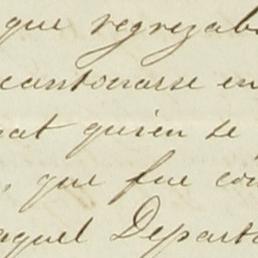 que regrezab
cantonarse en
at quien se
, que fue con
aquel Departa